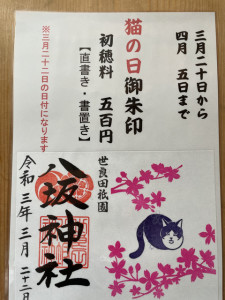 三月二十日から
四月　五日まで
猫の日御朱印
初穂料　五百円
【直書き・書置き】
※三月二十二日の日付になります
世良田祇園
八坂神社
令和三年三月二十二日